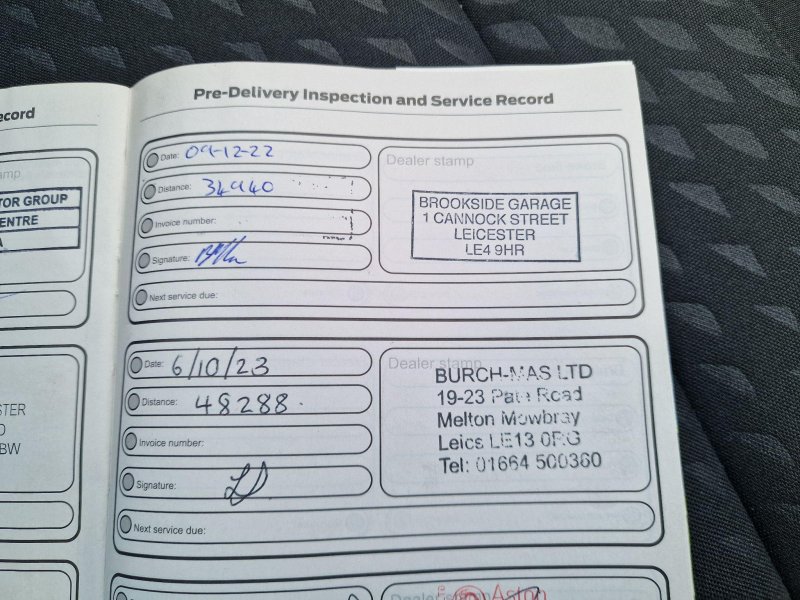 ecord
amp
TOR GROUP
ENTRE
A
STER
O
BW
Pre-Delivery Inspection and Service Record
Date: 09-12-22
Distance: 34940
Invoice number:
Signature:
Next service due:
Dealer stamp
BROOKSIDE GARAGE
1 CANNOCK STREET
LEICESTER
LE4 9HR
Date: 6/10/23
Distance: 48288.
Invoice number:
Signature:
Next service due:
Dealer stamp
BURCH-MAS LTD
19-23 Road
Melton Mowbray
Leics LE13 0RG
Tel: 01664 500360
Dealer stamp
Aston